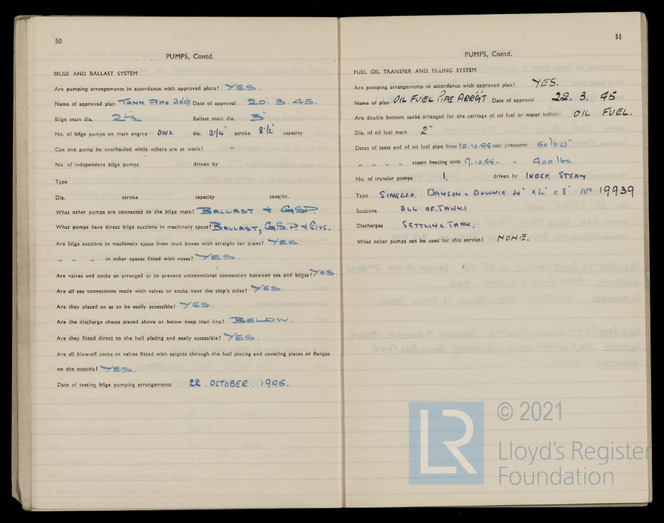 50
PUMPS, Contd.
BILGE AND BALLAST SYSTEM
Are pumping arrangements in accordance with approved plans? YES.
Name of approved plan TANK PIPE ARRGT Date of approval 20.3.45.
Bilge main dia. 2½ Ballast main dia. 3"
No. of bilge pumps on main engine ONE dia. 2¼" stroke 8½" capacity
Can one pump be overhauled while others are at work? -
No. of independent bilge pumps driven by
Type
Dia. stroke capacity tons/hr.
What other pumps are connected to the bilge main? BALLAST & G.S.P.
What pumps have direct bilge suctions in machinery space? BALLAST, G.S.P. & CIRC.
Are bilge suctions in machinery space from mud boxes with straight tail pipes? YES.
" " " in other spaces fitted with roses? YES.
Are valves and cocks so arranged as to prevent unintentional connection between sea and bilges? YES.
Are all sea connections made with valves or cocks next the ship's sides? YES.
Are they placed so as to be easily accessible? YES.
Are the discharge chests placed above or below deep load line? BELOW.
Are they fitted direct to the hull plating and easily accessible? YES.
Are all blow-off cocks or valves fitted with spigots through the hull plating and covering plates or flanges
on the outside? YES.
Date of testing bilge pumping arrangements 22. OCTOBER. 1945.
51
PUMPS, Contd.
FUEL OIL TRANSFER AND FILLING SYSTEM
Are pumping arrangements in accordance with approved plan? YES.
Name of plan OIL FUEL PIPE ARRGT Date of approval 22.3.45
Are double bottom tanks arranged for the carriage of oil fuel or water ballast? OIL FUEL.
Dia. of oil fuel main 2"
Dates of tests and of oil fuel pipe lines 10.10.45 test pressures 60 lb □"
" " " " steam heating coils 9.10.45 " 400 lbs.
No. of transfer pumps 1. driven by INDEP. STEAM
Type SINGLE, DAWSON & DOWNIE 4" x 4" x 8" No 19939
Suctions ALL OF. TANKS
Discharges SETTLING TANK.
What other pumps can be used for this service? NONE.
LR
© 2021
Lloyd's Register
Foundation